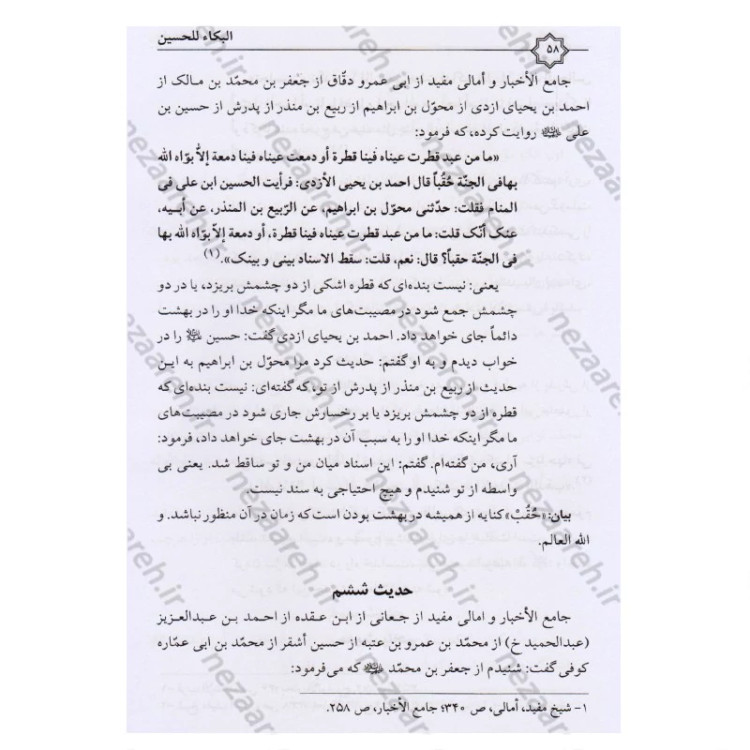 ۵۸
البکاء للحسین
جامع الأخبار و أمالی مفید از ابی عمرو دقّاق از جعفر بن محمّد بن مالک از
احمد بن یحیای ازدی از محوّل بن ابراهیم از ربیع بن منذر از پدرش از حسین بن
علی ﷺ روایت کرده، که فرمود:
«ما من عبد قطرت عیناه فینا قطرة أو دمعت عیناه فینا دمعة إلاّ بوّاه الله
بهافی الجنّة حُقُباً قال احمد بن یحیی الأزدی: فرأیت الحسین ابن علی فی
المنام فقلت: حدّثنی محوّل بن ابراهیم، عن الرّبیع بن المنذر، عن أبیه،
عنک أنّک قلت: ما من عبد قطرت عیناه فینا قطرة، أو دمعة إلاّ بوّاه الله بها
فی الجنّة حقباً؟ قال: نعم، قلت: سقط الاسناد بینی و بینک».(۱)
یعنی: نیست بنده‌ای که قطره اشکی از دو چشمش بریزد، یا در دو
چشمش جمع شود در مصیبت‌های ما مگر اینکه خدا او را در بهشت
دائماً جای خواهد داد. احمد بن یحیای ازدی گفت: حسین را در
خواب دیدم و به او گفتم: حدیث کرد مرا محوّل بن ابراهیم به این
حدیث از ربیع بن منذر از پدرش از تو، که گفته‌ای: نیست بنده‌ای که
قطره از دو چشمش بریزد یا بر رخسارش جاری شود در مصیبت‌های
ما مگر اینکه خدا او را به سبب آن در بهشت جای خواهد داد، فرمود:
آری، من گفته‌ام. گفتم: این اسناد میان من و تو ساقط شد. یعنی بی
واسطه از تو شنیدم و هیچ احتیاجی به سند نیست.
بیان: «حُقُبْ» کنایه از همیشه در بهشت بودن است که زمان در آن منظور نباشد. و
الله العالم.
حدیث ششم
جامع الأخبار و امالی مفید از جعانی از ابن عقده از احمد بن عبدالعزیز
(عبدالحمید خ) از محمّد بن عمرو بن عتبه از حسین أشقر از محمّد بن ابی عمّاره
کوفی گفت: شنیدم از جعفر بن محمّد که می‌فرمود:
۱- شیخ مفید، أمالی، ص ۳۴۰؛ جامع الأخبار، ص ۲۵۸.
nezaareh.ir